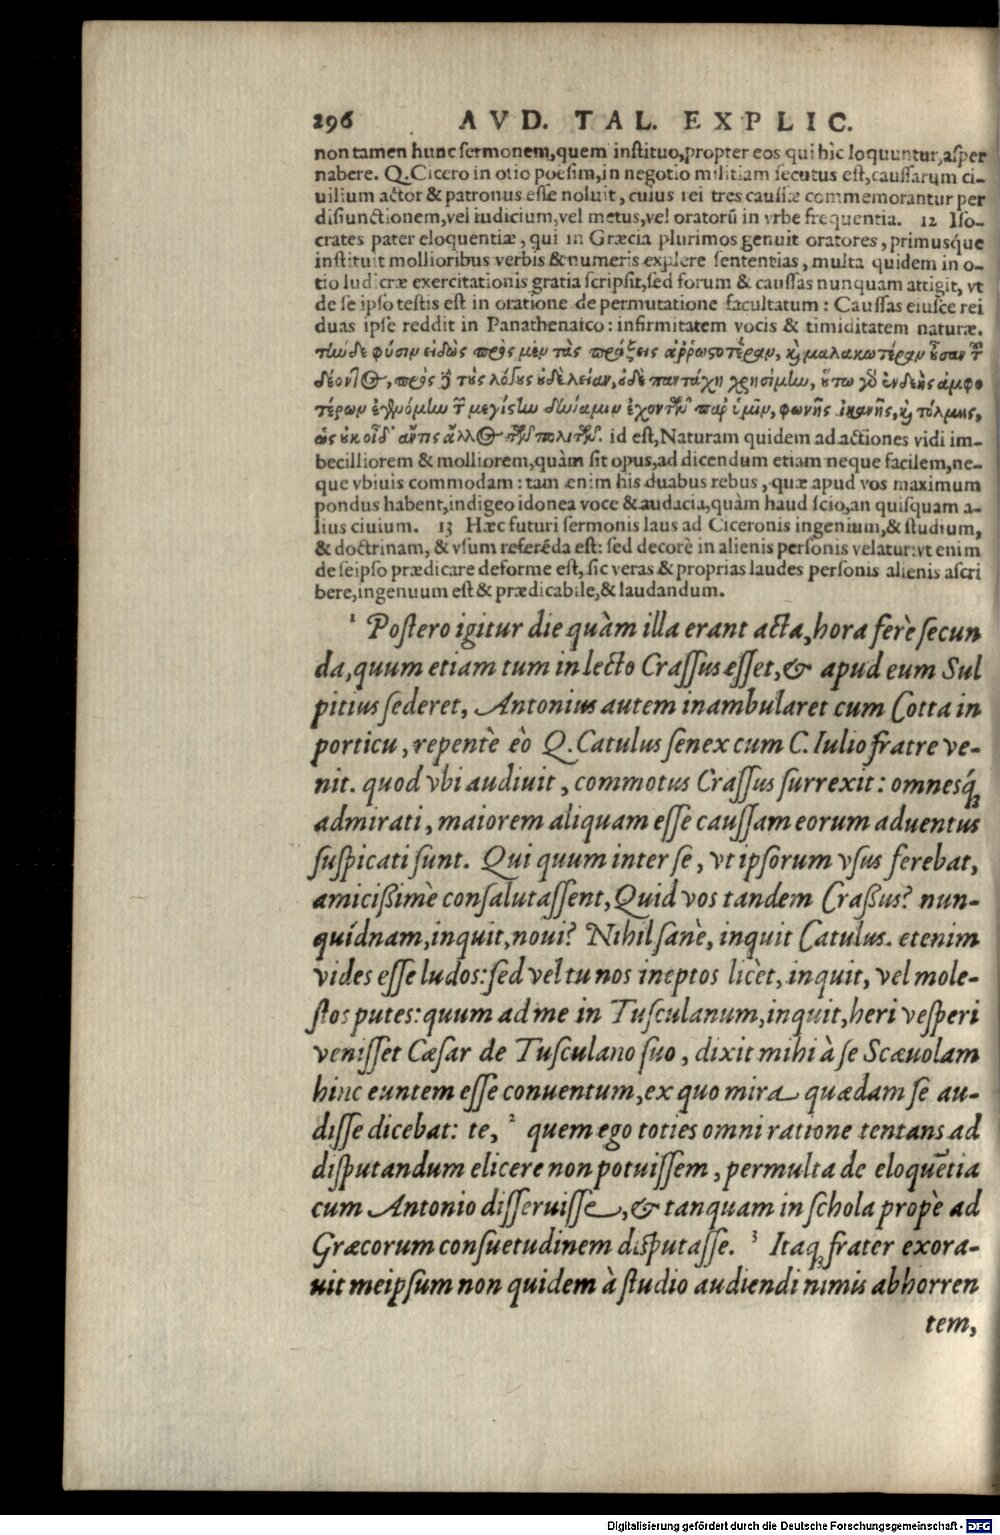 296 AVD. TAL. EXPLIC.
non tamen hunc ſermonem,quem inſtituo,propter eos qui hîc loquuntur,aſper
nabere. Q.Cicero in otio poeſim,in negotio militiam ſecutus eſt,cauſſarum ci-
uilium actor & patronus eſſe noluit, cuius rei tres cauſſæ commemorantur per
diſiunctionem,vel iudicium,vel metus,vel oratorū in vrbe frequentia. 12 Iſo-
crates pater eloquentiæ, qui in Græcia plurimos genuit oratores, primusq́ue
inſtituit mollioribus verbis & numeris explere ſententias, multa quidem in o-
tio ludicræ exercitationis gratia ſcripſit,ſed forum & cauſſas nunquam attigit, vt
de ſe ipſo teſtis eſt in oratione de permutatione facultatum: Cauſſas eiuſce rei
duas ipſe reddit in Panathenaico: infirmitatem vocis & timiditatem naturæ.
τὴν δὲ φύσιν εἰδὼς πρὸς μὲν τὰς πράξεις ἀῤῥωστοτέραν, καὶ μαλακωτέραν οὖσαν τοῦ
δέοντος, πρὸς δὲ τοὺς λόγους οὐ τελείαν, οὐδὲ πανταχῇ χρησίμην, οὕτω γὰρ ἐνδεὴς ἀμφο
τέρων ἐγενόμην τῶν μεγίστην δύναμιν ἐχόντων παρ' ὑμῖν, φωνῆς ἱκανῆς, καὶ τόλμης,
ὡς οὐκ οἶδ' ἄν τις ἄλλος τῶν πολιτῶν. id eſt,Naturam quidem ad actiones vidi im-
becilliorem & molliorem,quàm ſit opus,ad dicendum etiam neque facilem,ne-
que vbiuis commodam: tam enim his duabus rebus, quæ apud vos maximum
pondus habent,indigeo idonea voce & audacia,quàm haud ſcio,an quiſquam a-
lius ciuium. 13 Hæc futuri ſermonis laus ad Ciceronis ingenium,& ſtudium,
& doctrinam, & vſum referēda eſt: ſed decorè in alienis perſonis velatur:vt enim
de ſeipſo prædicare deforme eſt, ſic veras & proprias laudes perſonis alienis aſcri
bere,ingenuum eſt & prædicabile,& laudandum.
1 Poſtero igitur die quàm illa erant acta, hora ferè ſecun
da, quum etiam tum in lecto Craſſus eſſet, & apud eum Sul
pitius ſederet, Antonius autem inambularet cum Cotta in
porticu, repentè eò Q. Catulus ſenex cum C. Iulio fratre ve-
nit. quod vbi audiuit, commotus Craſſus ſurrexit: omnesq́;
admirati, maiorem aliquam eſſe cauſſam eorum aduentus
ſuſpicati ſunt. Qui quum inter ſe, vt ipſorum vſus ferebat,
amiciſſimè conſalutaſſent, Quid vos tandem Craßus? nun-
quídnam, inquit, noui? Nihil ſanè, inquit Catulus. etenim
vides eſſe ludos: ſed vel tu nos ineptos licèt, inquit, vel mole-
ſtos putes: quum ad me in Tuſculanum, inquit, heri veſperi
veniſſet Cæſar de Tuſculano ſuo, dixit mihi à ſe Scæuolam
hinc euntem eſſe conuentum, ex quo mira quædam ſe au-
diſſe dicebat: te, 2 quem ego toties omni ratione tentans ad
diſputandum elicere non potuiſſem, permulta de eloquētia
cum Antonio diſſeruiſſe, & tanquam in ſchola propè ad
Græcorum conſuetudinem diſputaſſe. 3 Itaq; frater exora-
uit meipſum non quidem à ſtudio audiendi nimis abhorren
tem,
Digitalisierung gefördert durch die Deutsche Forschungsgemeinschaft - DFG